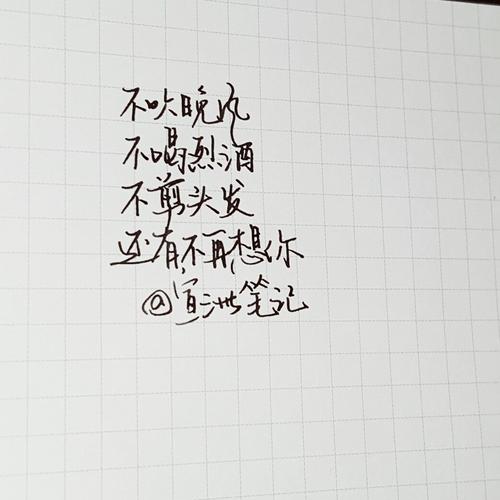 不吹晚风
不喝烈酒
不剪头发
还有,不再想你
@宣洲笔记